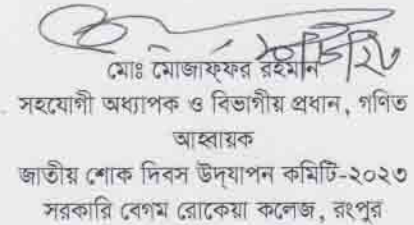 মোঃ মোজাফ্ফর রহমান
সহযোগী অধ্যাপক ও বিভাগীয় প্রধান, গণিত
আহবায়ক
জাতীয় শোক দিবস উদ্‌যাপন কমিটি-২০২৩
সরকারি বেগম রোকেয়া কলেজ, রংপুর